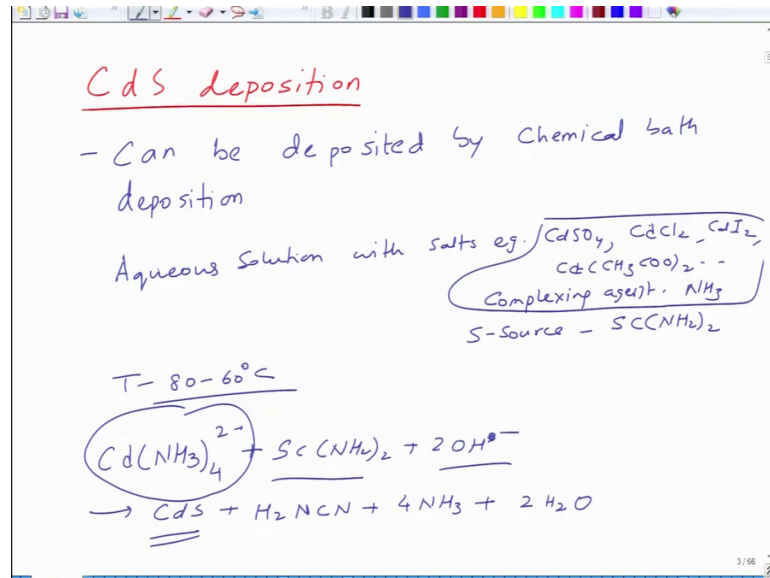 CdS deposition
- Can be deposited by Chemical bath
deposition
Aqueous Solution with Salts eg. CdSO4, CdCl2, CdI2,
Cd(CH3COO)2 - -
Complexing agent. NH3
S-Source - SC(NH2)2
T- 80-60°C
Cd(NH3)4^2- + SC(NH2)2 + 2OH^-
→ CdS + H2NCN + 4NH3 + 2H2O
3/66